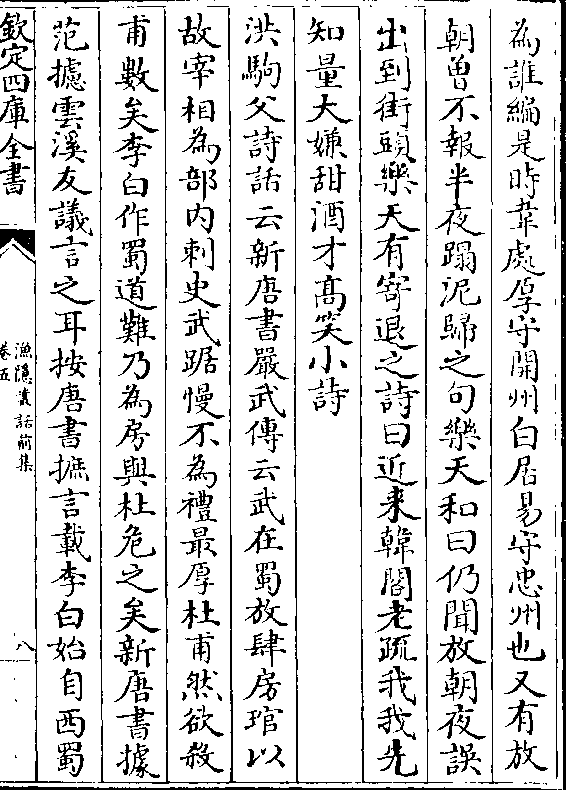 為誰編是時韋處厚守開州白居易守忠州也又有放
朝曾不報半夜蹋泥歸之句樂天和曰仍聞放朝夜誤
出到街頭樂天有寄退之詩曰近来韓閣老疏我我先
知量大嫌甜酒才髙笑小詩
洪駒父詩話云新唐書嚴武傳云武在蜀放肆房琯以
故宰相為部内刺史武踞慢不為禮最厚杜甫然欲殺
甫數矣李白作蜀道難乃為房與杜危之矣新唐書據
范攄雲溪友議言之耳按唐書摭言載李白始自西蜀
欽定四庫全書
漁隠叢話前集
卷五
八